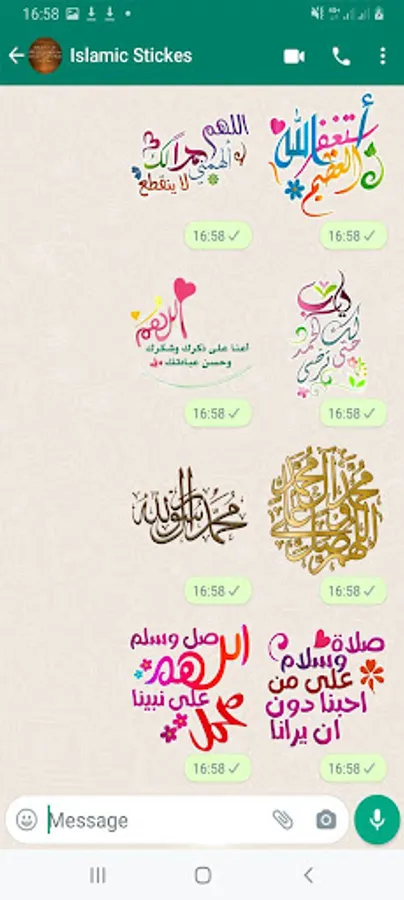 16:58
Islamic Stickes
اللهم
ألهمني حمدا لك
لا ينقطع
أستغفر
الله
العظيم
16:58
16:58
اللهم
أعنا على ذكرك وشكرك
وحسن عبادتك
يارب
لك الحمد
حتى ترضى
16:58
16:58
محمد رسول الله
اللهم صل على محمد وعلى آل محمد
16:58
16:58
صل وسلم
اللهم
على نبينا
محمد
صلاة
وسلام
على من
احبنا دون
ان يرانا
16:58
16:58
Message